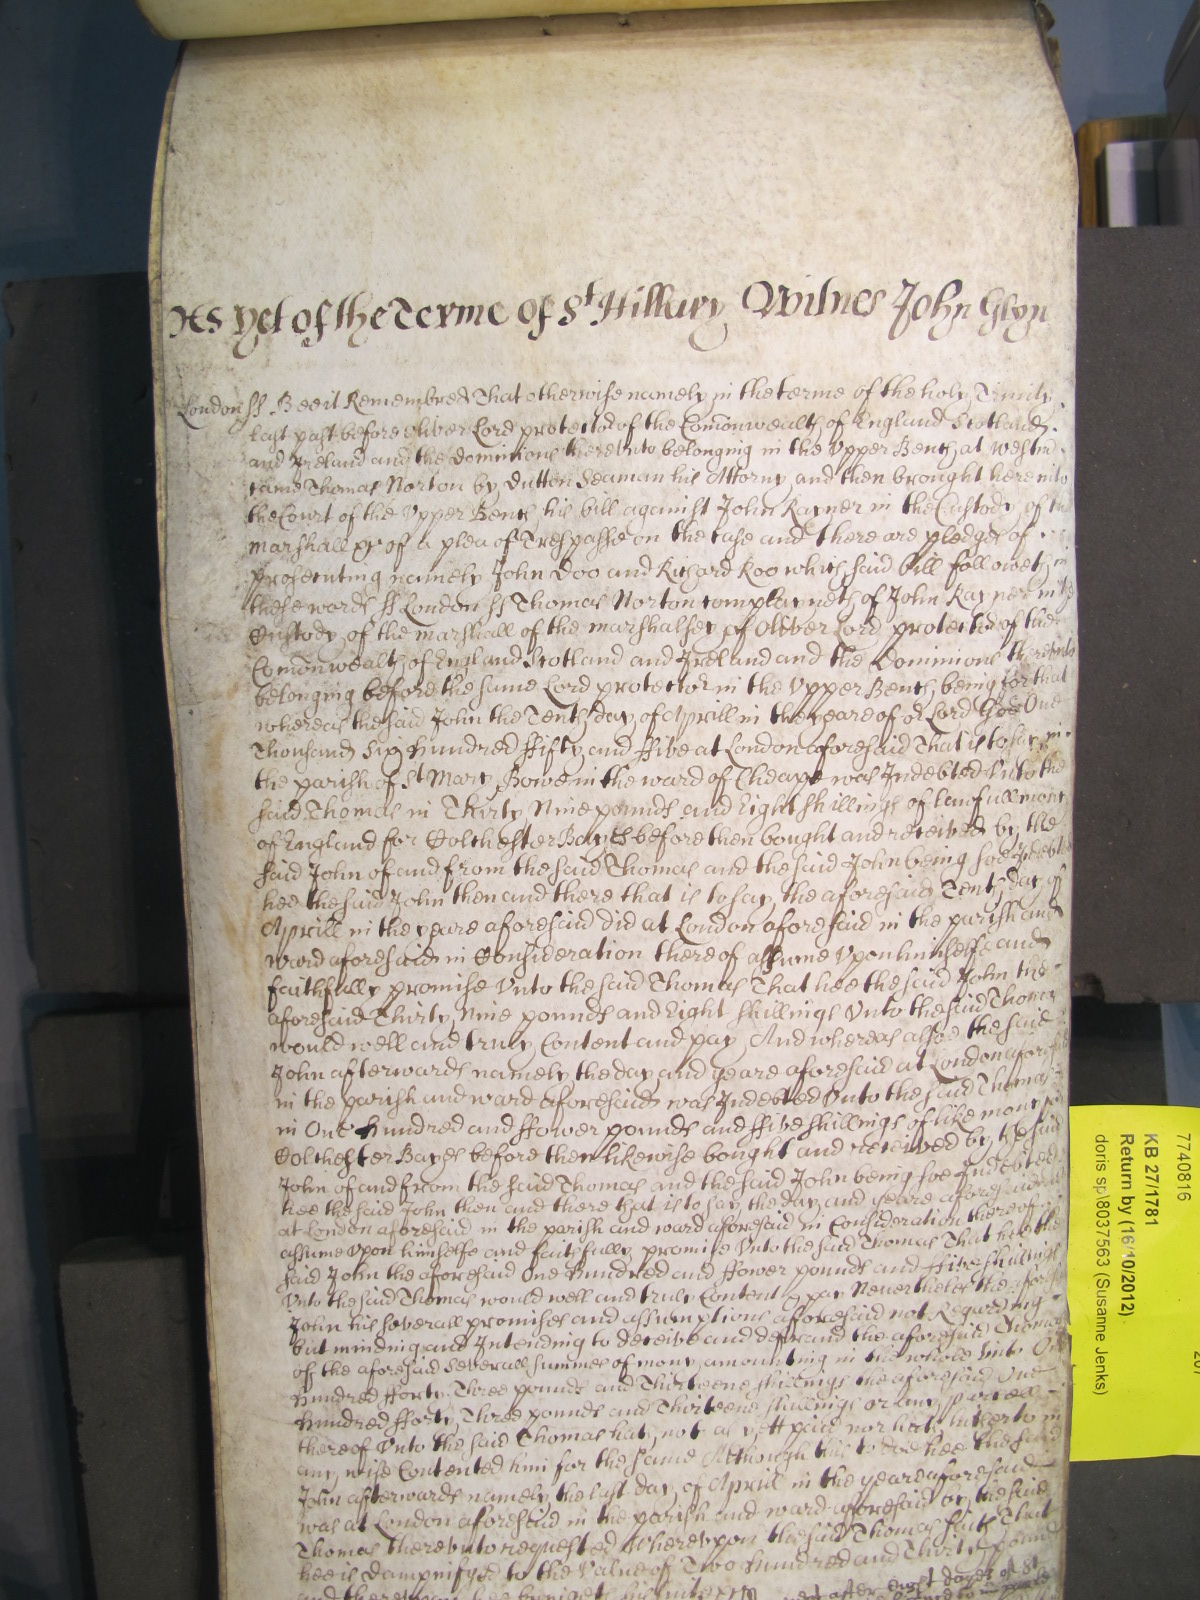 As yet of the Terme of St Hillary Witnes John Glyn
London ss Bee it Remembred That otherwise namely in the terme of the holy Trinity
last past before Oliver Lord protector of the Comonwealth of England Scotland
and Ireland and the dominions thereunto belonging in the Upper Bench at Westmr
came Thomas Norton by Dutton Seaman his Attorny and then brought here into
the Court of the Upper Bench his bill against John Rayner in the Custody of the
marshall &c of a plea of Trespasse on the case and there are pledges of
prosecuting namely John Doo and Richard Roo which said bill followeth in
these words ss London ss Thomas Norton complayneth of John Rayner in the
Custody of the marshall of the marshalsey of Oliver Lord protector of the
Comonwealth of England Scotland and Ireland and the Dominions thereunto
belonging before the same Lord protector in the Upper Bench being for that
whereas the said John the Tenth day of Aprill in the yeare of or Lord God One
Thousand Six Hundred ffifty and ffive at London aforesaid That is to say in
the parish of St Mary Bowe in the ward of Cheape was Indebted Unto the
said Thomas in Thirty Nine pounds and Eight shillings of lawfull mony
of England for Colchester Bayes before then bought and received by the
said John of and from the said Thomas and the said John being soe Indebted
hee the said John then and there that is to say the aforesaid Tenth day of
Aprill in the yeare aforesaid did at London aforesaid in the parish and
ward aforesaid in Consideration thereof assume Upon himselfe and
faithfully promise Unto the said Thomas That hee the said John the
aforesaid Thirty Nine pounds and Eight shillings Unto the said Thomas
would well and truly Content and pay And whereas alsoe the said
John afterwards namely the day and yeare aforesaid at London aforesaid
in the parish and ward aforesaid was Indebted Unto the said Thomas
in One Hundred and ffower pounds and ffive shillings of like mony for
Colchester Bayes before then likewise bought and received by the said
John of and from the said Thomas and the said John being soe Indebted
hee the said John then and there that is to say the day and yeare aforesaid
at London aforesaid in the parish and ward aforesaid in Consideration thereof
assume Upon himselfe and faithfully promise Unto the said Thomas That hee the
said John the aforesaid One Hundred and ffower pounds and ffive shillings
Unto the said Thomas would well and truly Content & pay Neverthelesse the aforesaid
John his severall promises and assumptions aforesaid not Regarding
but minding and Intending to deceive and defraud the aforesaid Thomas
of the aforesaid Severall summes of mony amounting in the whole Unto One
Hundred fforty Three pounds and Thirteene shillings the aforesaid One
Hundred fforty Three pounds and Thirteene shillings or any parcell
thereof Unto the said Thomas hath not as yett paid nor hath hitherto in
any wise Contented him for the same Although this to doe hee the said
John afterwards namely the last day of Aprill in the yeare aforesaid
was at London aforesaid in the parish and ward aforesaid by the said
Thomas thereunto requested Whereupon the said Thomas saith That
hee is dampnifyed to the Value of Two Hundred and Thirty pounds
and thereupon hee bringeth his suite &c
next after eight dayes of St
7740816
KB 27/1781
Return by (16/10/2012)
doris sp\8037563 (Susanne Jenks)